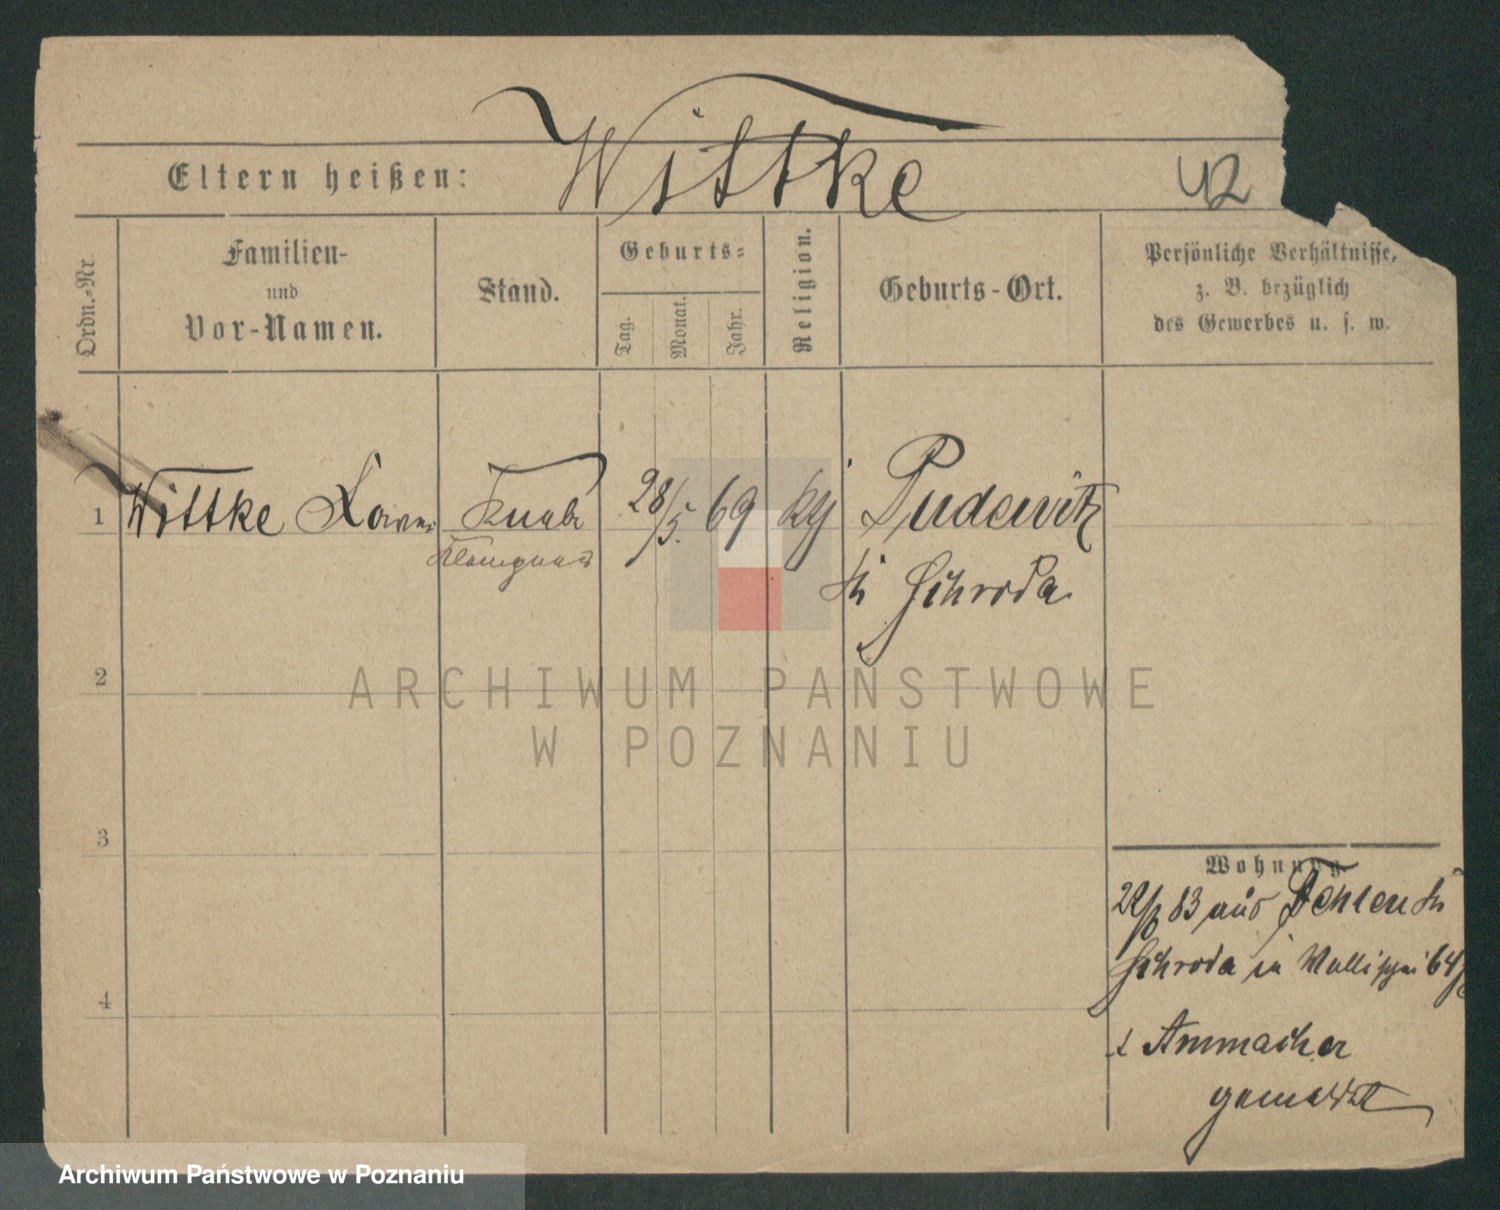 Wittke
Eltern heißen:
42
Ordn.-Nr.
Familien-
und
Vor-Namen.
Stand.
Geburts-
Tag.
Monat.
Jahr.
Religion.
Geburts-Ort.
Persönliche Verhältnisse,
z. B. bezüglich
des Gewerbes u. s. w.
1 Wittke Knabe 28/5. 69 Pudewitz
Klempner
Schroda
2
3
4
Wohnung
83 aus
Schroda in Wallischei 64
Ammacher
gemeldet
ARCHIWUM PAŃSTWOWE
W POZNANIU
Archiwum Państwowe w Poznaniu